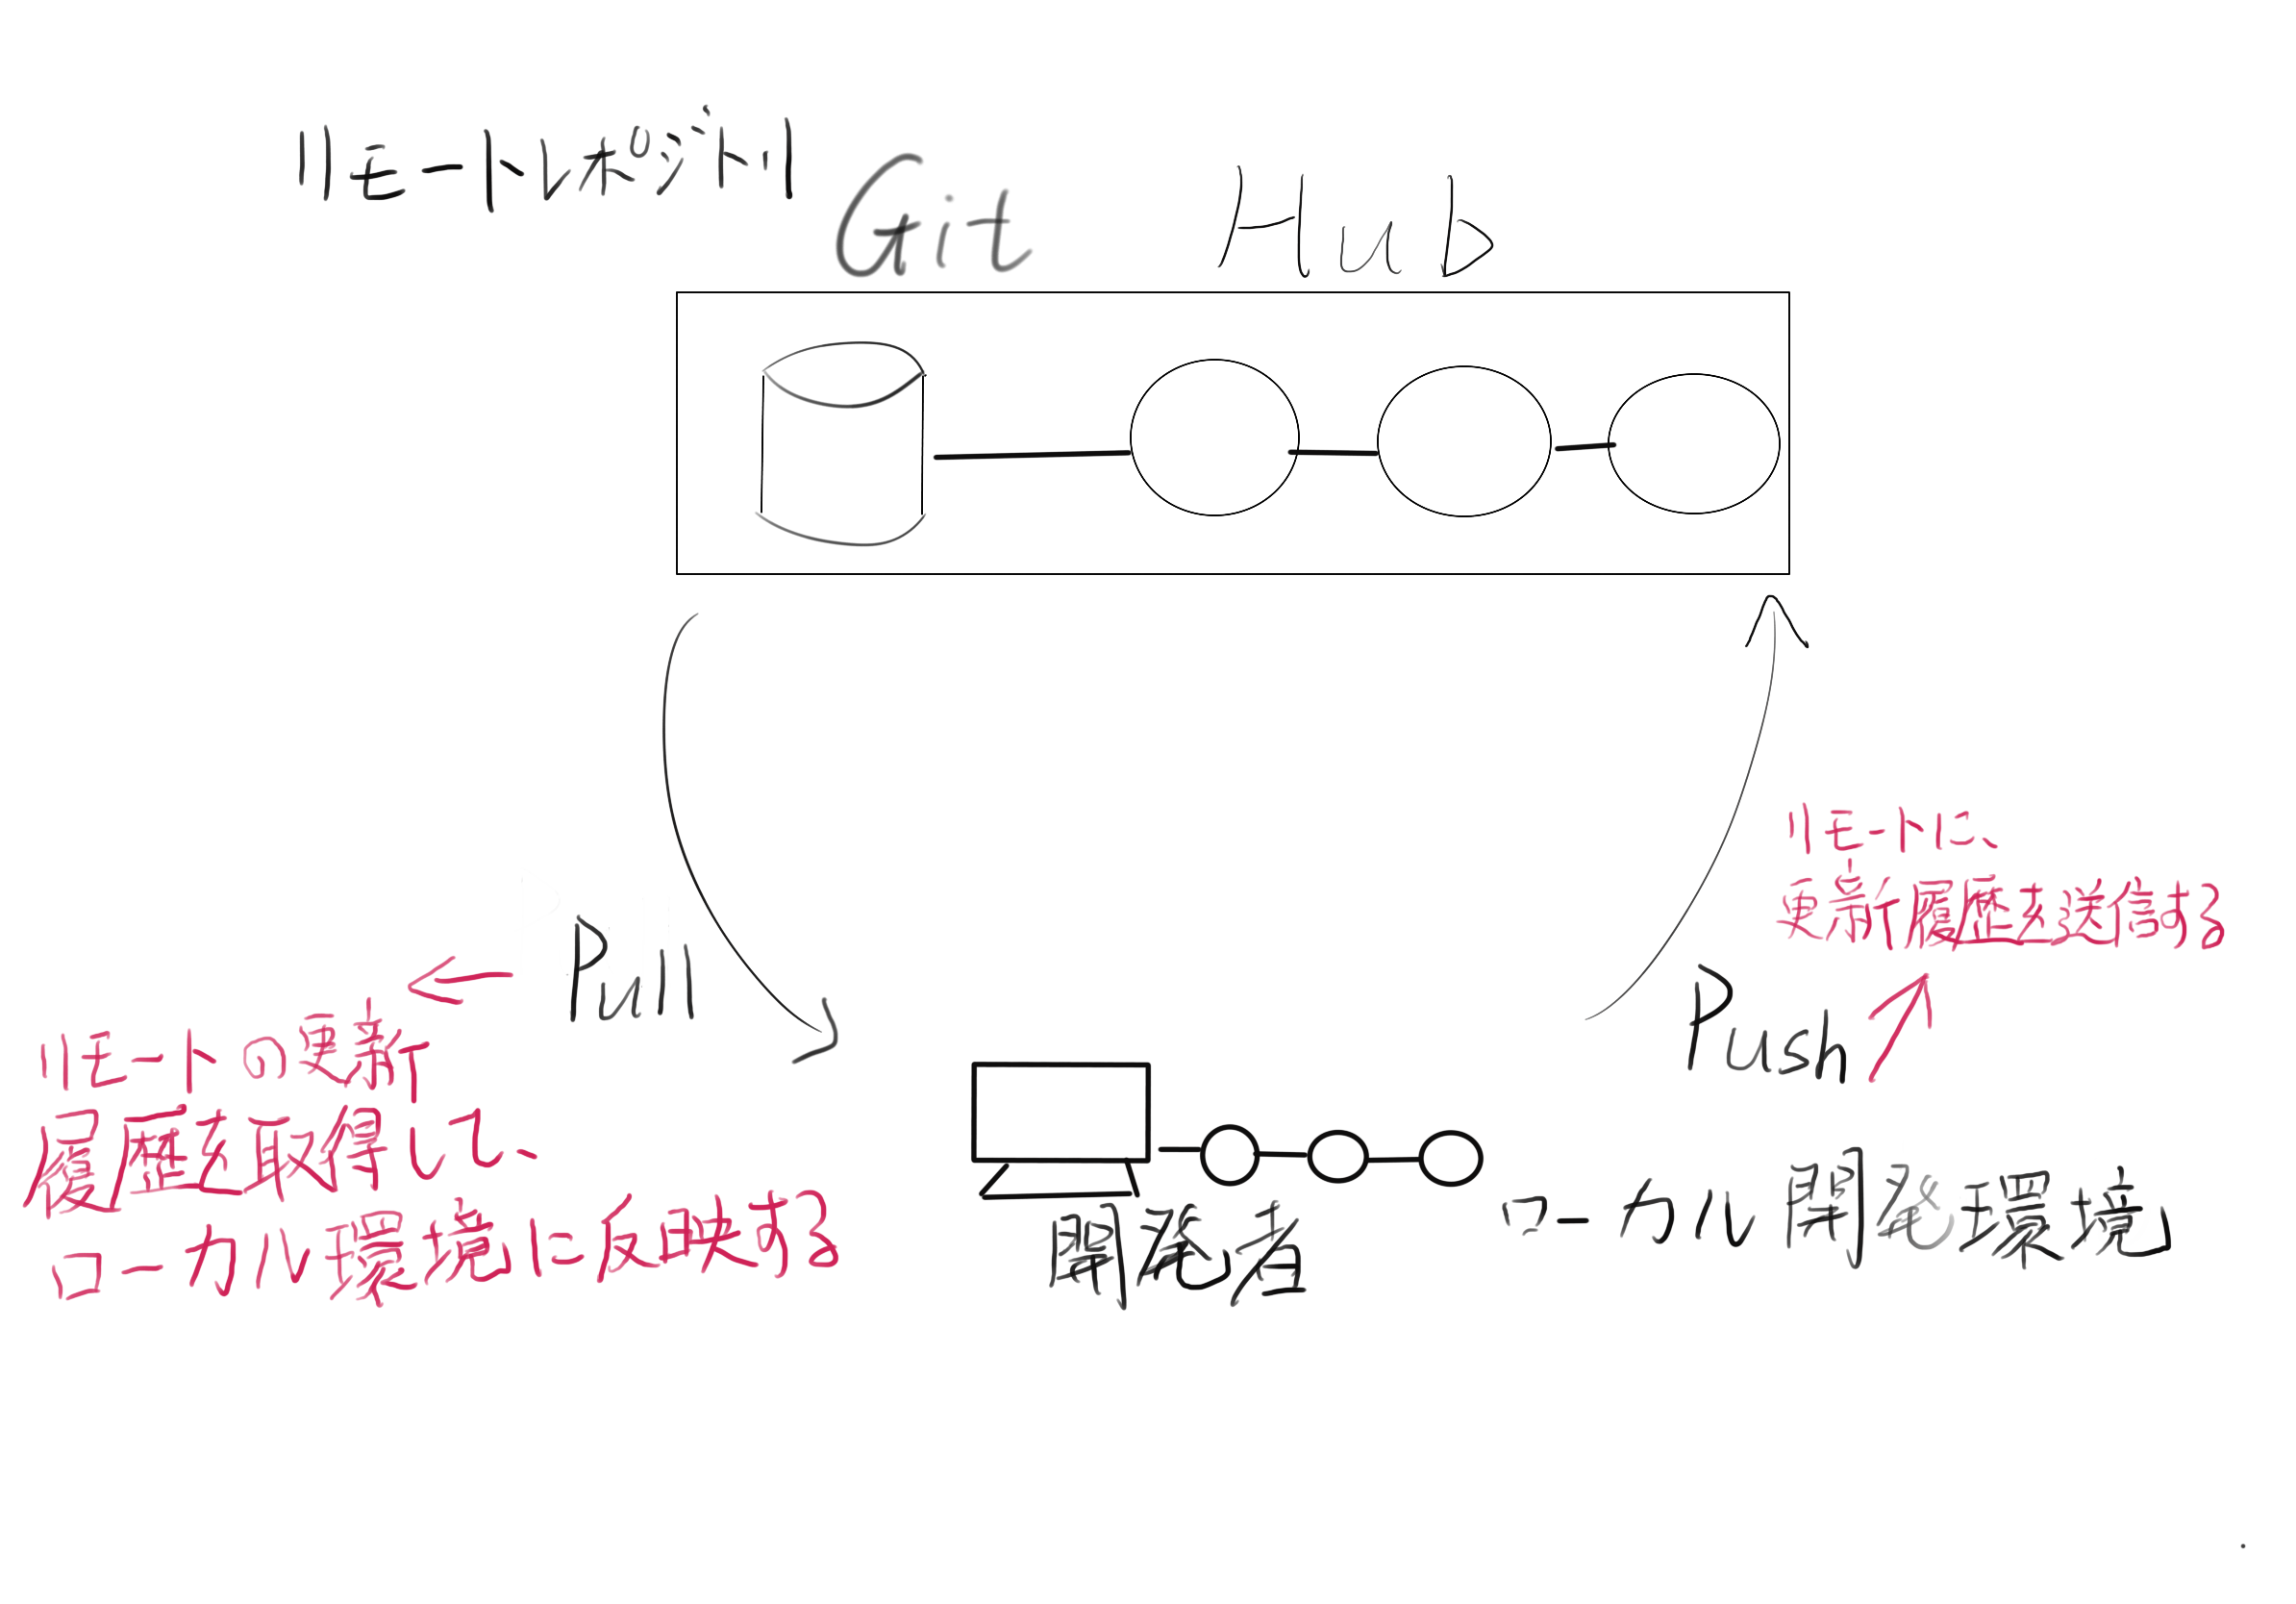 リモートレポジトリ
Git Hub
リモートに、
更新履歴を送信する
Pull
Push
リモートの更新
履歴を取得して、
ローカル環境に反映する
開発者
ローカル開発環境